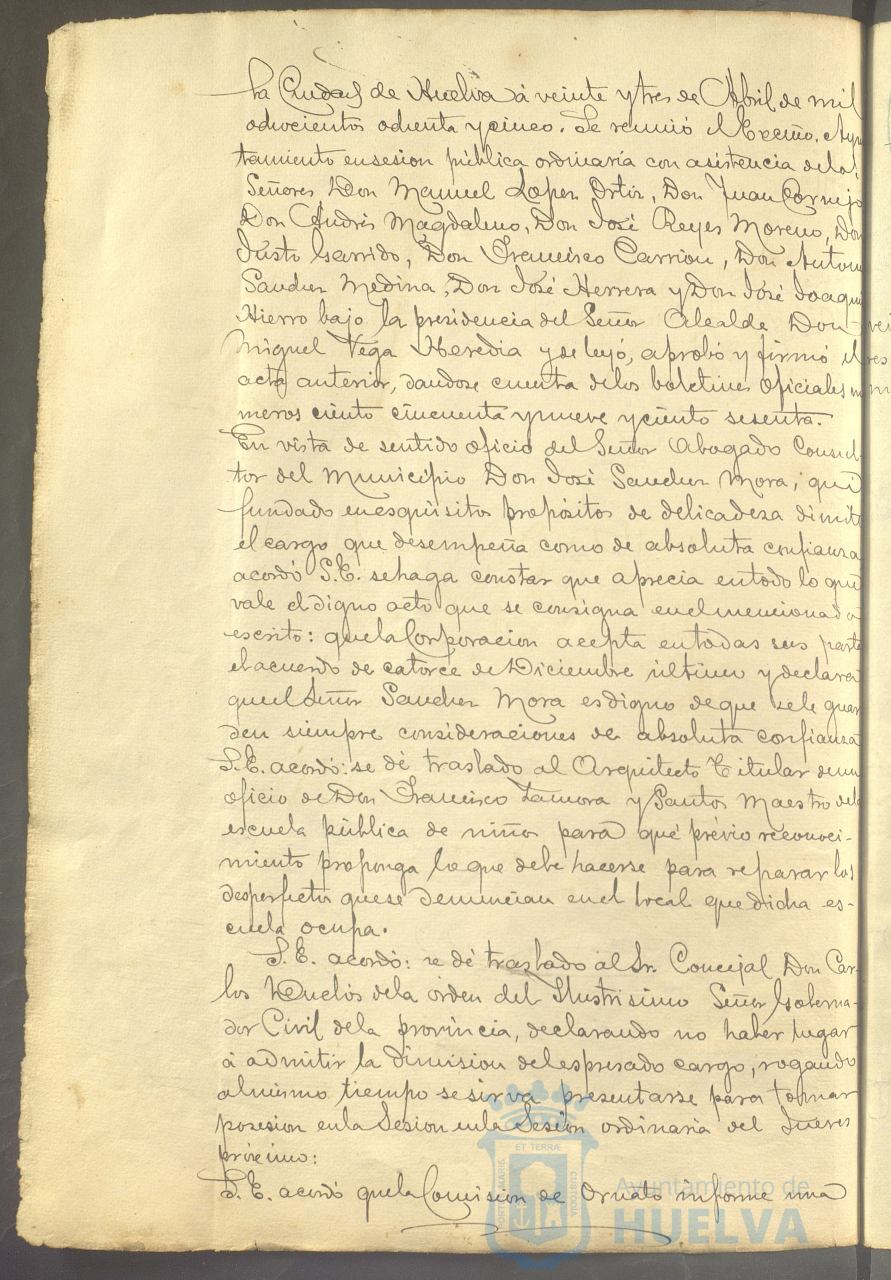 la Ciudad de Huelva á veinte y tres de Abril de mil
ochocientos ochenta y cinco. Se reunió el Excmo. Ayun
tamiento en sesion pública ordinaria con asistencia de los
Señores Don Manuel Lopez Ortiz, Don Juan Cornejo
Don Andrés Magdaleno, Don José Reyes Moreno, Don
Justo Garrido, Don Francisco Carrion, Don Antonio
Sanchez Medina, Don José Herrera y Don José Joaqui
Hierro bajo la presidencia del Señor Alcalde Don
Miguel Vega Heredia y se leyó, aprobó y firmó el
acta anterior, dandose cuenta de los boletines oficiales nu
meros ciento cincuenta y nueve y ciento sesenta.
En vista de sentido oficio del Señor Abogado Consul-
tor del Municipio Don José Sanchez Mora, que
fundado en esquisitos propósitos de delicadeza dimite
el cargo que desempeña como de absoluta confianza
acordó S.E. se haga constar que aprecia en todo lo que
vale el digno acto que se consigna en el mencionado
escrito: que la Corporacion acepta en todas sus parte
el acuerdo de catorce de Diciembre último y declara
que el Señor Sanchez Mora es digno de que se le guar
den siempre consideraciones de absoluta confianza
S.E. acordó: se dé traslado al Arquitecto Titular de un
oficio de Don Francisco Zamora y Santos Maestro de la
escuela pública de niños para que prévio reconoci-
miento proponga lo que debe hacerse para reparar los
desperfectos que se denuncian en el local que dicha es-
cuela ocupa.
S.E. acordó: se dé traslado al Sr. Concejal Don Car-
los Duelos de la orden del Ilustrisimo Señor Goberna-
dor Civil de la provincia, declarando no haber lugar
á admitir la dimision del espresado cargo, rogando
al mismo tiempo se sirva presentarse para tomar
posesion en la Sesion en la Sesion ordinaria del Jueves
próximo:
S.E. acordó que la Comision de Ornato informe una
PORTUS MARIS ET TERRAE CUSTODIA
Ayuntamiento de
HUELVA